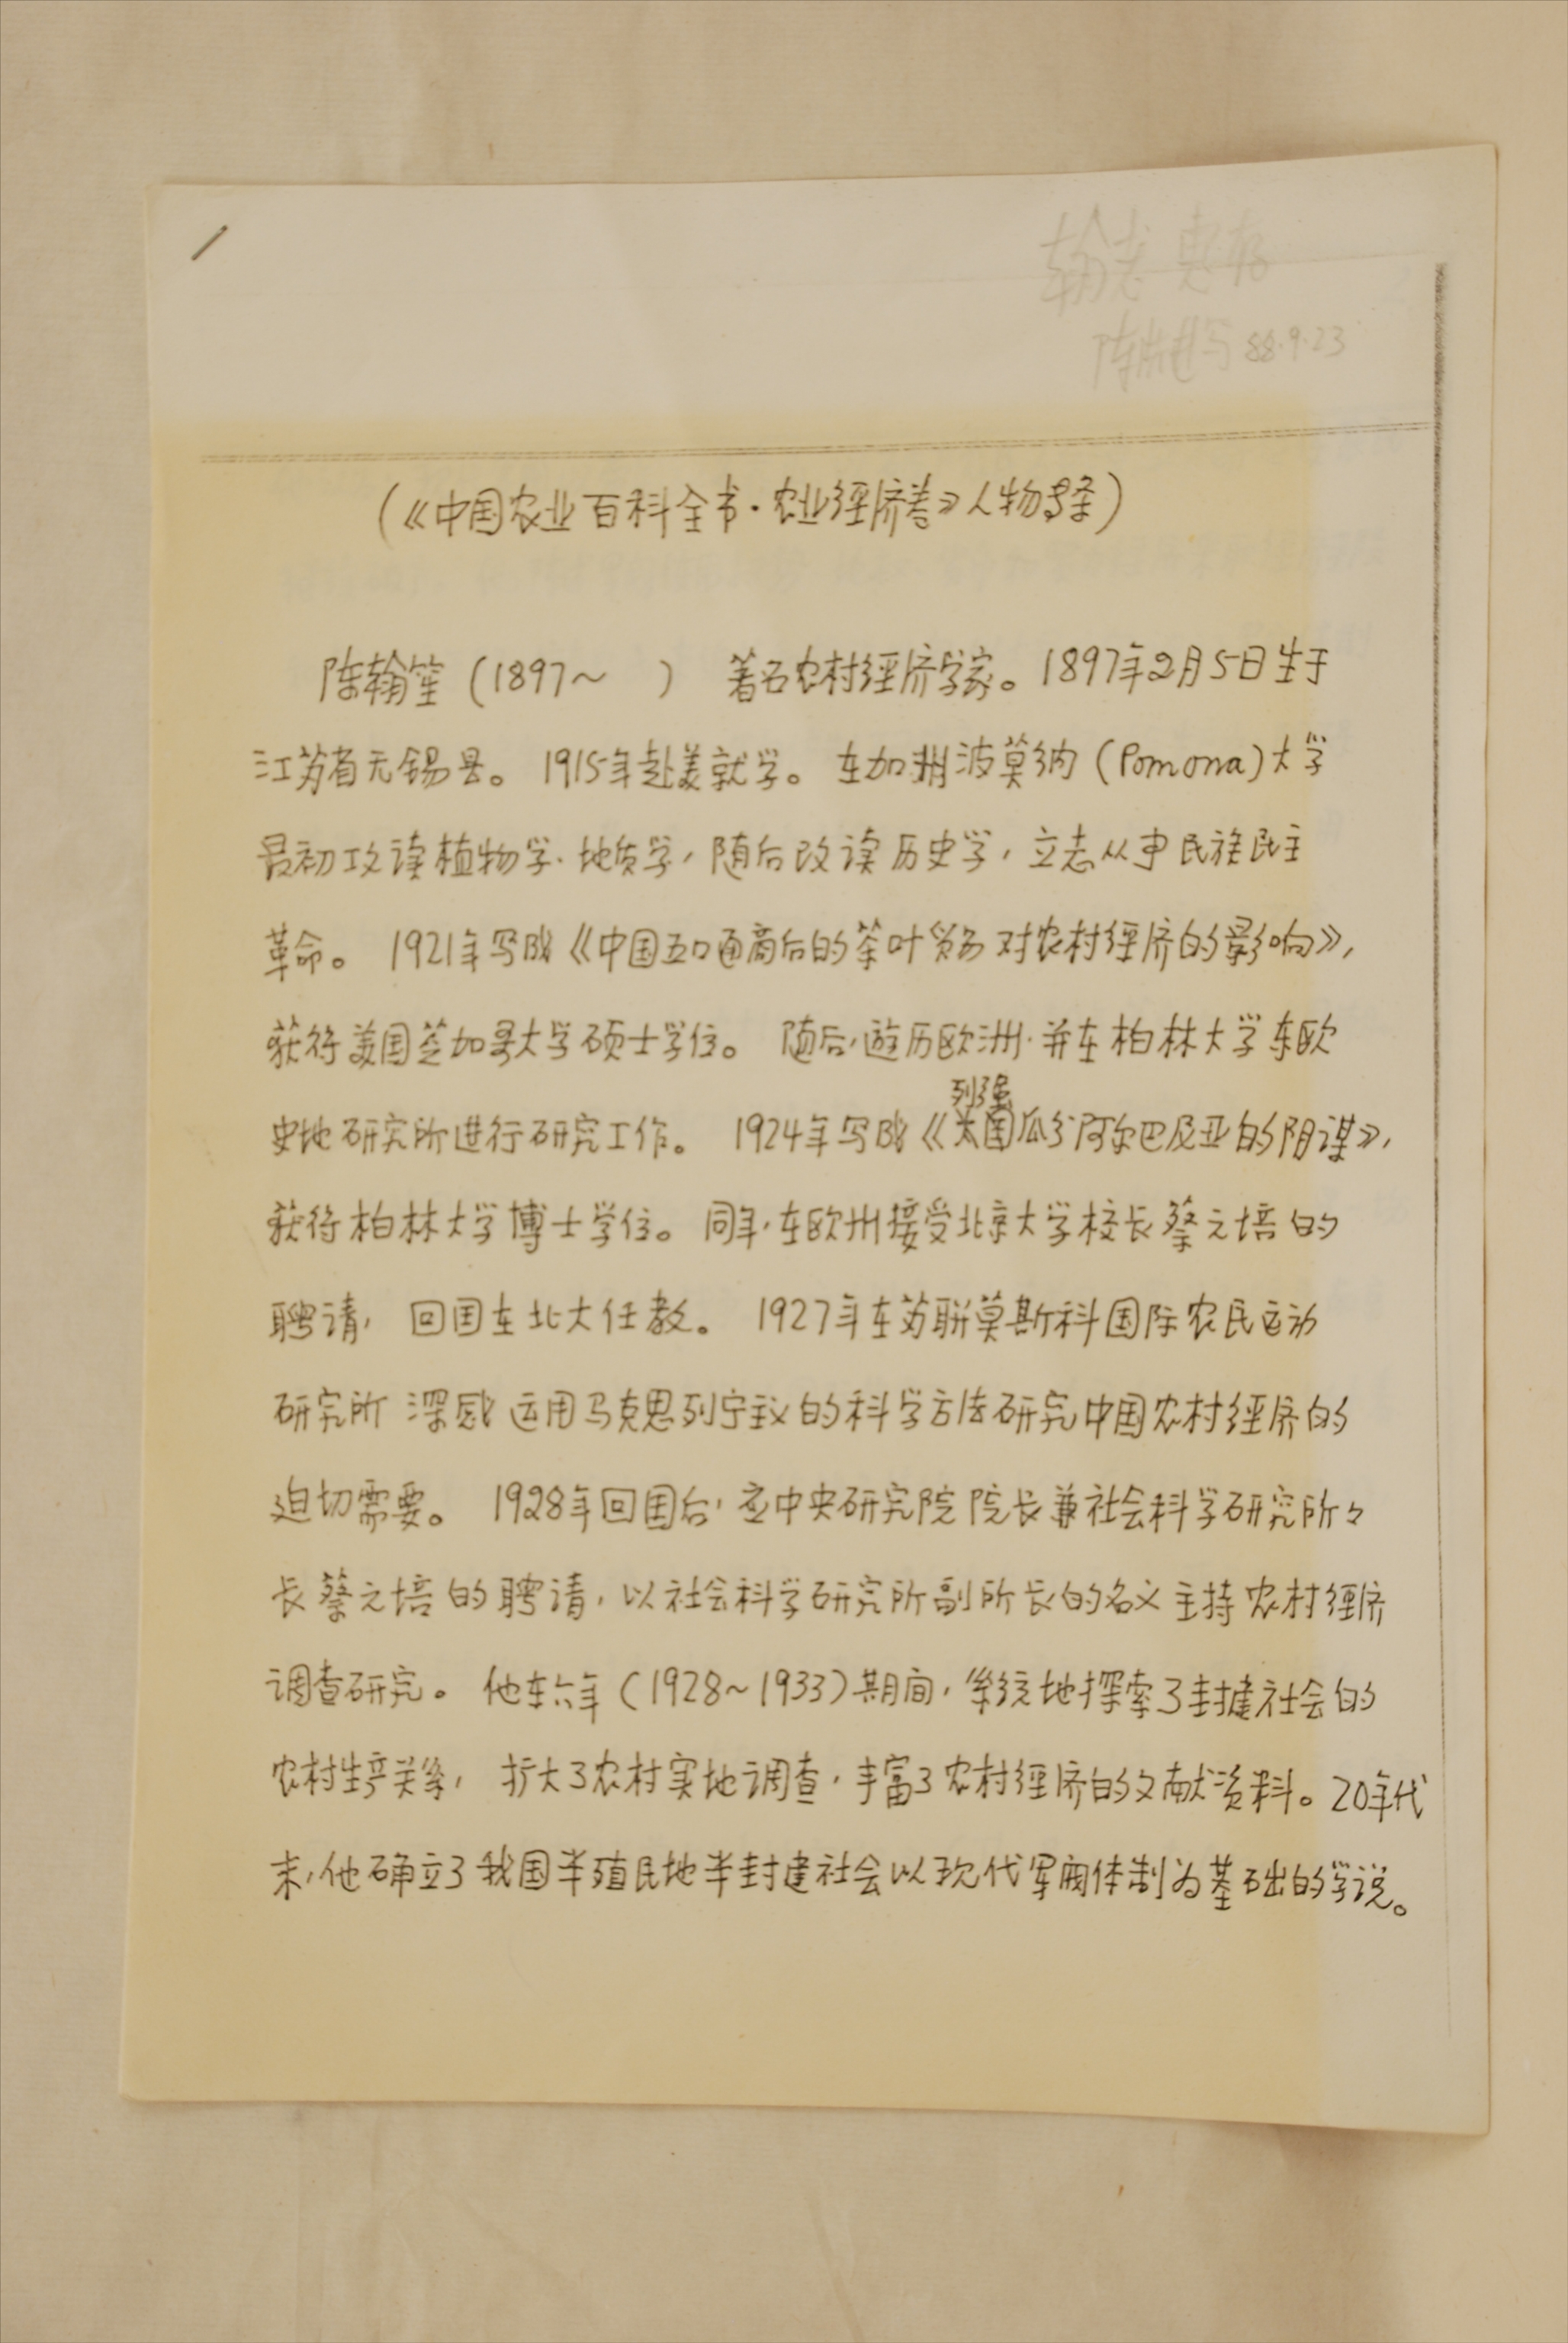 翰老 惠存
陈 写 88.9.23
(《中国农业百科全书·农业经济卷》人物条)
陈翰笙 (1897～ ) 著名农村经济学家。1897年2月5日生于
江苏省无锡县。1915年赴美就学。在加洲波莫纳 (Pomona) 大学
最初攻读植物学、地质学,随后改读历史学,立志从事民族民主
革命。1921年写成《中国五口通商后的茶叶贸易对农村经济的影响》,
获得美国芝加哥大学硕士学位。随后,遊历欧洲,并在柏林大学东欧
列强
史地研究所进行研究工作。1924年写成《六国瓜分阿尔巴尼亚的阴谋》,
获得柏林大学博士学位。同年,在欧州接受北京大学校长蔡元培的
聘请,回国在北大任教。1927年在苏联莫斯科国际农民运动
研究所深感运用马克思列宁主义的科学方法研究中国农村经济的
迫切需要。1928年回国后,应中央研究院院长兼社会科学研究所々
长蔡元培的聘请,以社会科学研究所副所长的名义主持农村经济
调查研究。他在六年 (1928～1933) 期间,系统地探索了封建社会的
农村生产关系,扩大了农村实地调查,丰富了农村经济的文献资料。20年代
末,他确立了我国半殖民地半封建社会以现代军阀体制为基础的学说。